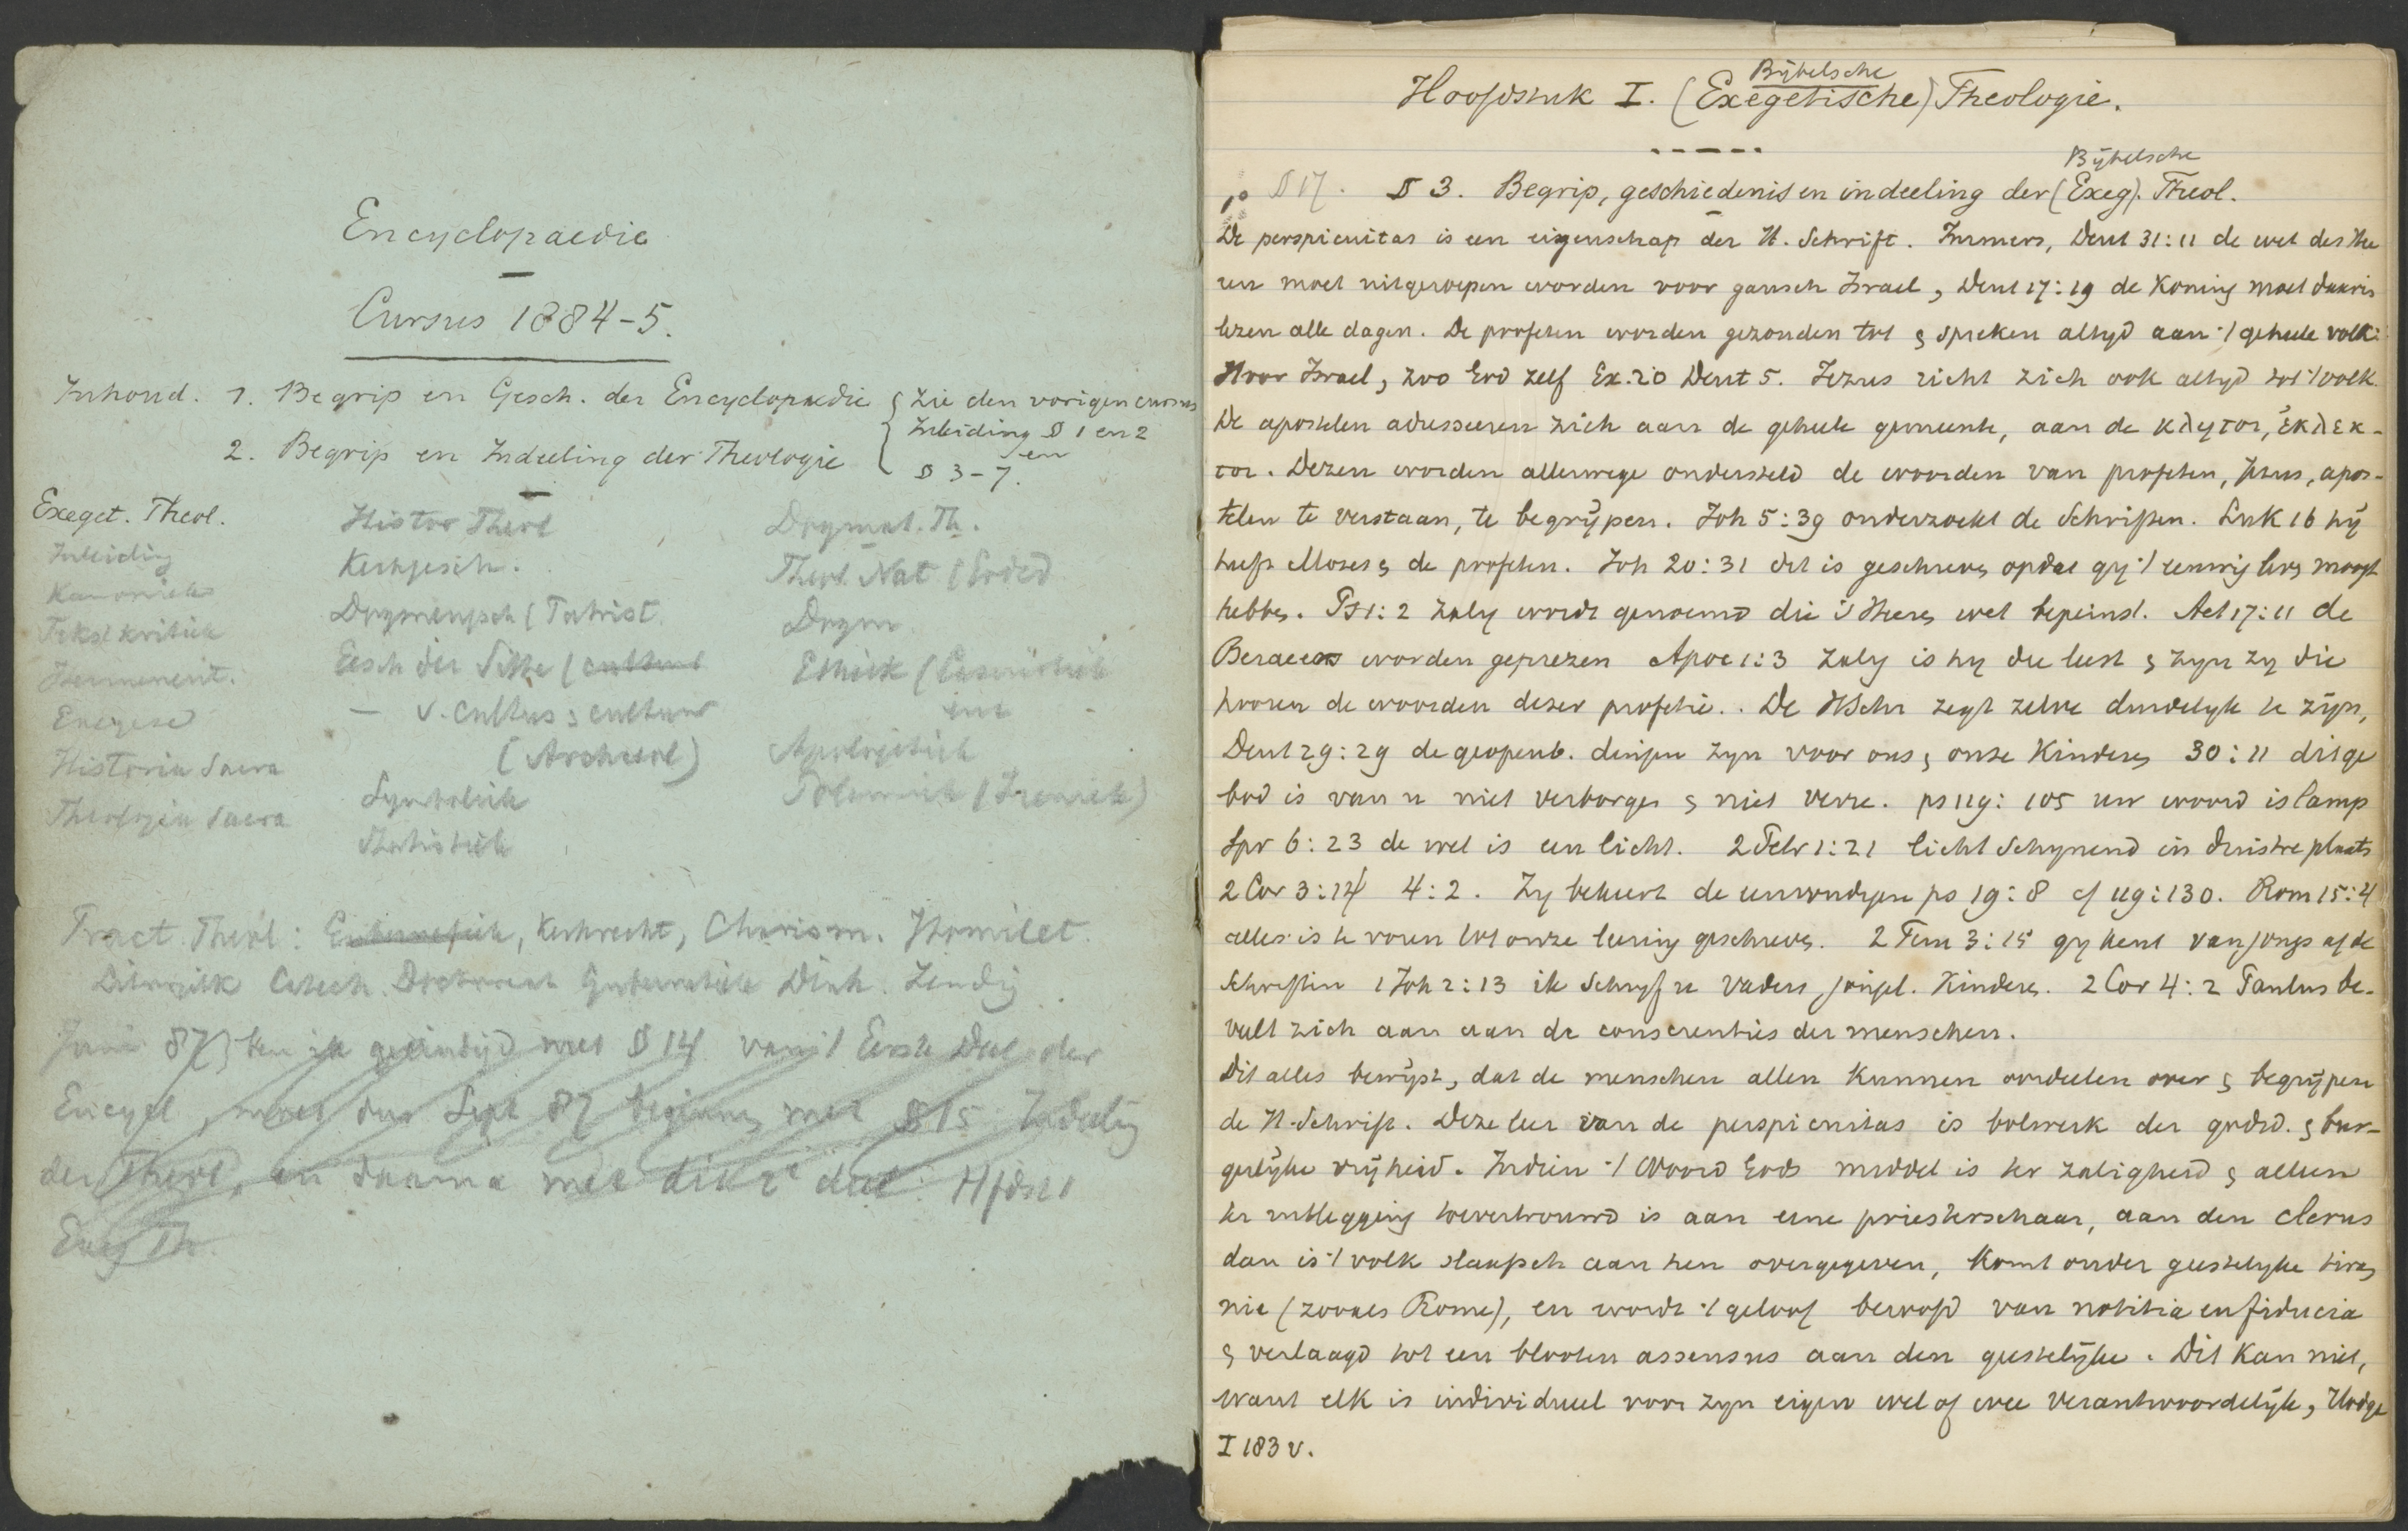 Encyclopaedie
Cursus 1884-5.
Inhoud. 1. Begrip en Gesch. der Encyclopaedie { zie den vorigen cursus
Inleiding § 1 en 2
2. Begrip en Indeeling der Theologie en
§ 3-7.
Exeget. Theol.
Inleiding
Kanoniek
Tekstkritiek
Hermeneut.
Exegese
Historia Sacra
Theologia Sacra
Histor Theol
Kerkgesch.
Dogmengesch (Patrist.
Gesch der Sitte (cultuur
— v. cultus & cultuur
(Archaeol)
Symboliek
Statistiek
Dogmat. Th.
Theol. Nat (Godsd
Dogm
Ethiek (Casuistiek
Apologetiek
Polemiek (Ireniek)
Pract. Theol: Kerkrecht, Charism. Homilet.
Liturgiek Catech. Gubernatiek Diak. Zending
Juni 87 ben ik geëindigd met § 14 van 't Eerste Deel der
Encycl, moet dus Sept 87 beginnen met § 15 Indeeling
der Theol, en daarna met dit 2e deel: Hfdst 1
Exeg Th.
Hoofdstuk I. (Exegetische) Theologie.
Bijbelsche
§ 17. § 3. Begrip, geschiedenis en indeeling der (Exeg). Theol.
Bijbelsche
De perspicuitas is een eigenschap der H. Schrift. Immers, Deut 31:11 de wet des Hee
ren moet uitgeroepen worden voor gansch Israel, Deut 17:19 de Koning moet daarin
lezen alle dagen. De profeten worden gezonden tot & spreken altyd aan 't geheele volk:
Hoor Israel, zoo God zelf Ex. 20 Deut 5. Jezus richt zich ook altyd tot 't volk.
De apostelen adresseeren zich aan de geheele gemeente, aan de κλητοι, ἐκλεκ-
τοι. Dezen worden allerwege ondersteld de woorden van profeten, Jezus, apos-
telen te verstaan, te begrijpen. Joh 5:39 onderzoekt de Schriften. Luk 16 hij
heeft Moses & de profeten. Joh 20:31 dit is geschreven opdat gy 't eeuwig leven moogt
hebben. Ps 1:2 zalig wordt genoemd die 's Heeren wet bepeinst. Act 17:11 de
Beraeers worden geprezen Apoc 1:3 zalig is hy die leest & zyn zy die
hooren de woorden dezer profetie. De HSchr zegt zelve duidelyk te zijn,
Deut 29:29 de geopenb. dingen zyn voor ons & onze Kinderen 30:11 dit ge
bod is van u niet verborgen & niet verre. ps 119:105 uw woord is lamp
Spr 6:23 de wet is een licht. 2 Petr 1:21 licht schynend in duistre plaats
2 Cor 3:14 4:2. Zy bekeert de eenvoudigen ps 19:8 cf 119:130. Rom 15:4
alles is te voren tot onze leering geschreven. 2 Tim 3:15 gy kent van jongs af de
Schriften 1 Joh 2:13 ik Schryf u Vaders, jongel. Kinderen. 2 Cor 4:2 Paulus be-
veelt zich aan aan de conscienties der menschen.
Dit alles bewijst, dat de menschen allen Kunnen oordeelen over & begrijpen
de H. Schrift. Deze leer van de perspicuitas is bolwerk der godsd. & bur-
gerlijke vrijheid. Indien 't Woord Gods middel is ter zaligheid & alleen
ter uitlegging toevertrouwd is aan eene priesterschaar, aan den clerus
dan is 't volk slaafsch aan hen overgegeven, Komt onder geestelyke tiran
nie (zooals Rome), en wordt 't geloof beroofd van notitia en fiducia
& verlaagd tot een blooten assensus aan den geestelijke. Dit Kan niet,
want elk is individueel voor zyn eigen wel of wee verantwoordelijk, Hodge
I 183 v.